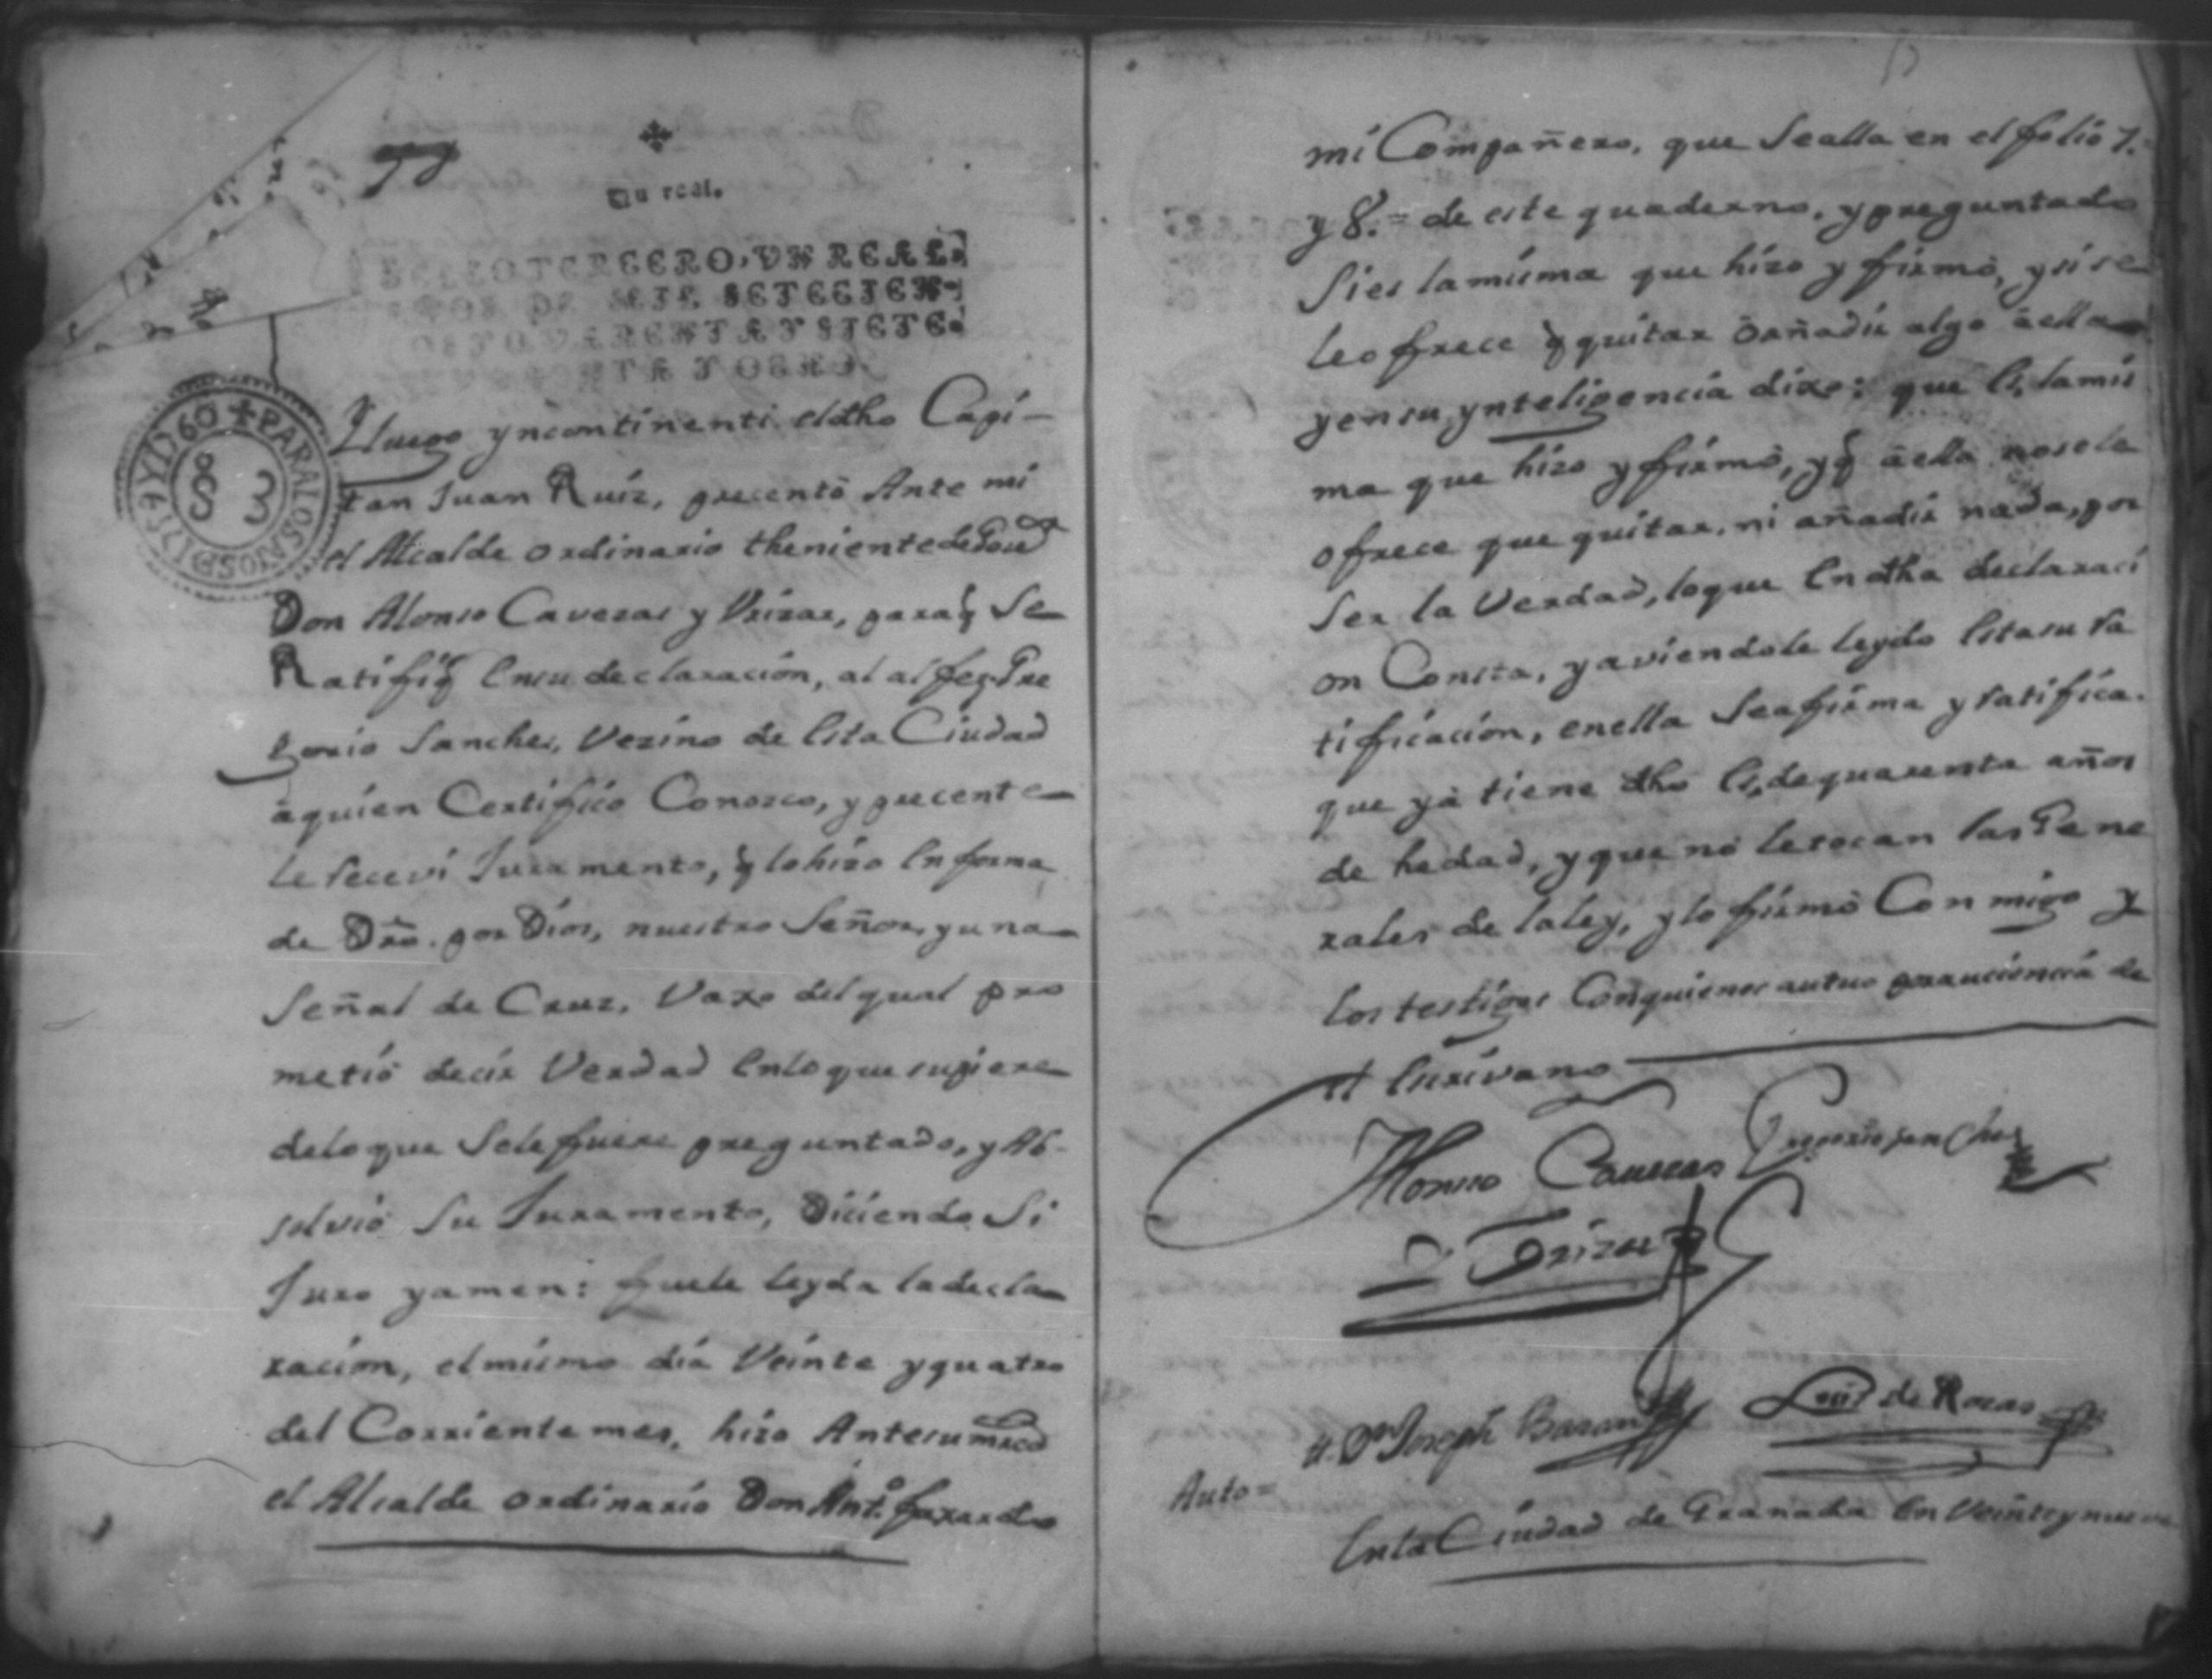 Un real.
SELLO TERCERO, UN REAL,
AÑOS DE MIL SETECIEN-
TOS QUARENTA Y SIETE,
Y QUARENTA Y OCHO.
PARA LOS AÑOS DE 1759 Y 1760
S 3
Yluego yncontinenti eldho Capi-
tan Juan Ruiz, precentò Ante mi
el Alcalde ordinario theniente de Gov.or
Don Alonso Cavezas y Vrizar, paraq Se
Ratifiq Ensu declaracion, al alferz. Gre
gorio Sanches, Vezino de Esta Ciudad
aquien Certifico Conozco, y precente
le receví Juramento, q lo hizo En forma
de Dro. por Dios, nuestro Señor, y una
Señal de Cruz, Vaxo del qual pro
metiò decir Verdad Enlo que supiere
delo que Sele fuere preguntado, y Ab-
solvió Su Juramento, Diciendo Si
Juro yamen: fuele leyda la decla
racion, el mismo dia Veinte y quatro
del Corriente mes, hizo Ante su mrcd
el Alcalde ordinario Don Ant.o faxardo
mi Compañero, que Sealla en el folio 7.
y 8. = de este quaderno, y preguntado
Si es la misma que hizo y firmò, y si se
le ofrece q quitar ò añadir algo à ella
y en su ynteligencia dixo: que Es, la mis
ma que hizo y firmò, y q à ella nosele
ofrece que quitar, ni añadir nada, por
Ser la Verdad, loque En dha declaraci
on Consta, y aviendole leydo Esta su ra
tificacion, enella Seafirma y ratifica.
que yà tiene dho Es, de quarenta años
de hedad, y que no le tocan las Gene
rales de la ley, y lo firmò Con migo y
los testigos Con quienes actuo por auciencia de
el Escrivano
Alonso Cavezas Gregorio san Ches
y Vrizar
tt. Dn Joseph Luis de Rozas
Auto =
Enla Ciudad de Granada En Veinteynueve